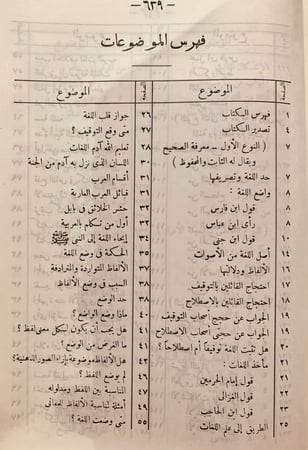 — ٦٣٩ —
فهرس الموضوعات
الصفحة الموضوع
١ فهرس الكتاب
٤ تصدير الكتاب
٧ ( النوع الأول — معرفة الصحيح
ويقال له الثابت والمحفوظ )
٧ حد اللغة وتصريفها
٨ واضع اللغة :
٨ قول ابن فارس
٨ رأى ابن عباس
١٠ قول ابن جنى
١٤ أصل اللغة من الأصوات
١٦ الألفاظ ودلالتها
١٧ احتجاج القائلين بالتوقيف
١٨ احتجاج القائلين بالاصطلاح
١٩ الجواب عن حجج أصحاب التوقيف
١٩ الجواب عن حجتى أصحاب الاصطلاح
٢٠ هل ثبتت اللغة توقيفاً أم اصطلاحاً ؟
٢١ مأخذ اللغات :
٢١ قول إمام الحرمين
٢٢ قول الغزالى
٢٣ قول ابن الحاجب
٢٥ الطريق إلى علم اللغات
الصفحة الموضوع
٢٦ جواز قلب اللغة
٢٧ متى وقع التوقيف ؟
٢٨ تعليم الله آدم اللغات
٣٠ اللسان الذى نزل به آدم من الجنة
٣١ أقسام العرب
٣١ قبائل العرب العاربة
٣٢ حشر الخلائق فى بابل
٣٢ أول من تكلم بالعربية
٣٤ إيحاء اللغة إلى النبى ﷺ
٣٥ الحكمة فى وضع اللغة
٣٧ الألفاظ المتواردة والمترادفة
٣٨ السبب فى وضع الألفاظ
٣٨ حد الوضع
٤٠ ماذا وضع الواضع ؟
٤١ هل يجب أن يكون لكل معنى لفظ ؟
٤١ ما الغرض من الوضع ؟
٤٢ هل الألفاظ موضوعة بإزاء الصور الذهنية ؟
لم يوضع اللفظ ؟
٤٧ المناسبة بين اللفظ ومدلوله
٤٩ أمثلة لمناسبة الألفاظ لمعانى
٥٥ متى وضعت اللغة ؟